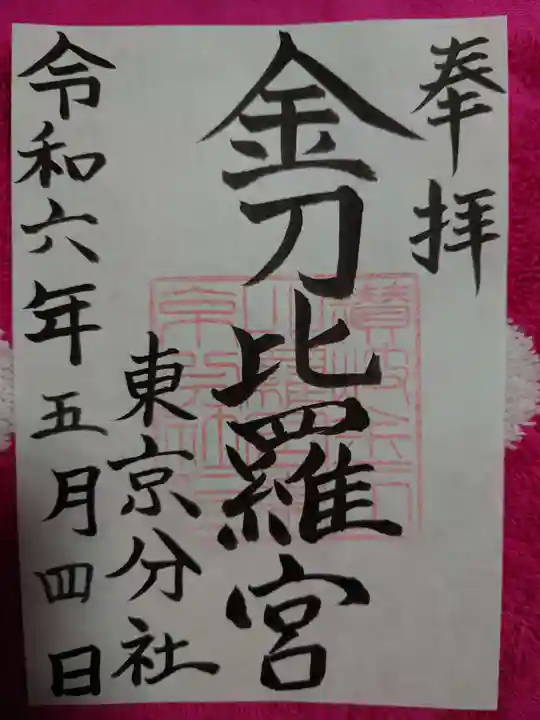 奉拝
金刀比羅宮
東京分社
令和六年五月四日